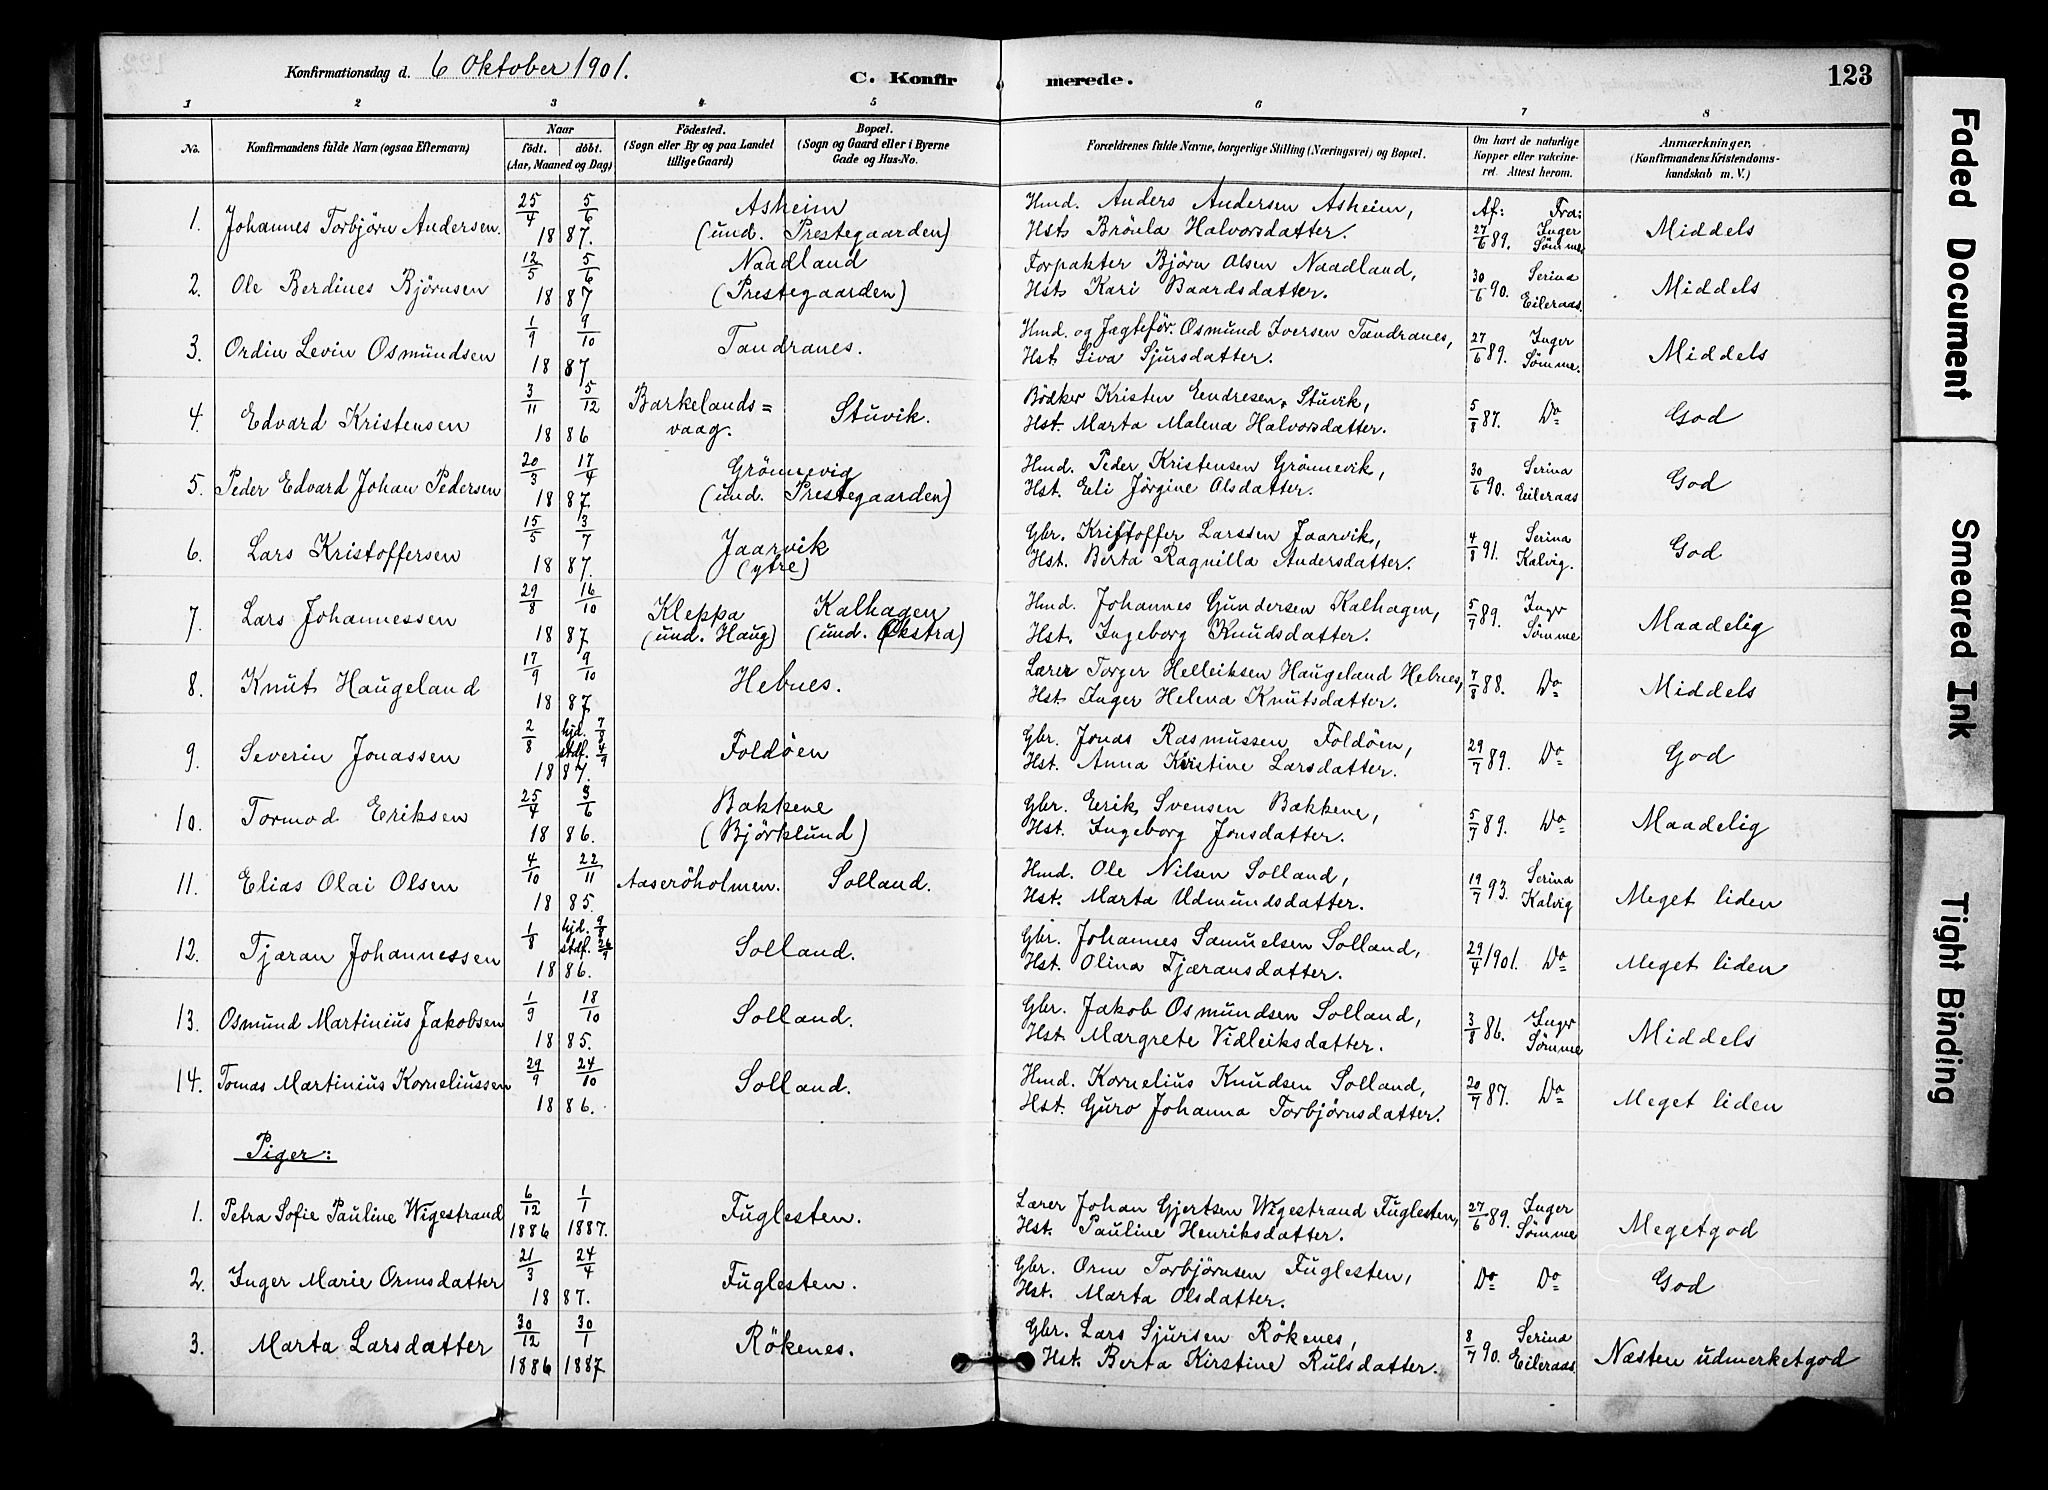 Konfirmationsdag d. 6 Oktober 1901.
C. Konfirmerede.
123
1 2 3 4 5 6 7 8
No.
Konfirmandens fulde Navn (ogsaa Efternavn)
Naar
født. døbt.
(Aar, Maaned og Dag)
Fødested.
(Sogn eller By og paa Landet
tillige Gaard)
Bopæl.
(Sogn og Gaard eller i Byerne
Gade og Hus-No.
Forældrenes fulde Navne, borgerlige Stilling (Næringsvei) og Bopæl.
Om havt de naturlige
Kopper eller vakcine-
ret. Attest herom.
Anmærkninger.
(Konfirmandens Kristendoms-
kundskab m. V.)
1. Johannes Torbjörn Andersen. 25/4 5/6 1887. Asheim (und. Prestegaarden)
Hmd. Anders Andersen Asheim,
Hst. Brönla Halvorsdatter.
Af: 27/6 89. Fra: Inger Sømme
Middels
2. Ole Berdines Bjørnsen 12/5 5/6 1887 Naadland (Prestegaarden)
Forpakter Björn Olsen Naadland,
Hst. Kari Baardsdatter.
30/6 90. Serina Eileraas.
Middels
3. Ordin Levin Osmundsen 1/9 9/10 1887 Tandranes.
Hmd. og Jagteför. Osmund Iversen Tandranes,
Hst. Siva Sjursdatter.
27/6 89. Inger Sømme.
Middels
4. Edvard Kristensen 3/11 5/12 1886 Barkelands=vaag. Stuvik.
Bödker Kristen Eendresen, Stuvik,
Hst. Marta Malena Halvorsdatter.
5/8 87. Do
God
5. Peder Edvard Johan Pedersen 20/3 17/4 1887. Grönnevig (und. Prestegaarden)
Hmd. Peder Kristensen Grönnevik,
Hst. Eli Jörgine Olsdatter.
30/6 90. Serina Eileraas
God
6. Lars Kristoffersen 15/5 3/7 1887. Jaarvik (ytre)
Gbr. Kristoffer Larssen Jaarvik,
Hst. Berta Ragnilla Andersdatter.
4/8 91. Serina Kalvig.
God
7. Lars Johannessen 29/8 16/10 1887 Kleppa (und. Haug) Kalhagen (und. Økstra)
Hmd. Johannes Gundersen Kalhagen,
Hst. Ingeborg Knudsdatter.
5/7 89. Inger Sømme
Maadelig
8. Knut Haugeland 17/9 9/10 1887 Hebnes.
Lærer Torger Helleiksen Haugeland Hebnes,
Hst. Inger Helena Knutsdatter.
7/8 88. Do
Middels
9. Severin Jonassen 2/8 hjd. 7/8 stdf. 4/9 1887. Foldöen
Gbr. Jonas Rasmussen Foldöen,
Hst. Anna Kristine Larsdatter.
29/7 89. Do
God
10. Tormod Eriksen 25/4 3/6 1886. Bakkene (Björklund)
Gbr. Eerik Svensen Bakkene,
Hst. Ingeborg Jonsdatter.
5/7 89. Do
Maadelig
11. Elias Olai Olsen 4/10 22/11 1885. Aaseröholmen. Solland.
Hmd. Ole Nilsen Solland,
Hst. Marta Udmundsdatter.
19/7 93. Serina Kalvig
Meget liden
12. Tjæran Johannessen 1/8 hjd. 9/8 stdf. 26/9 1886. Solland.
Gbr. Johannes Samuelsen Solland,
Hst. Olina Tjæransdatter.
29/4 1901. Do
Meget liden
13. Osmund Martinius Jakobsen 1/9 18/10 1885. Solland.
Gbr. Jakob Osmundsen Solland,
Hst. Margrete Vidleiksdatter.
3/8 86. Inger Sømme
Middels
14. Tomas Martinius Korneliussen 29/9 24/10 1886. Solland.
Hmd. Kornelius Knudsen Solland,
Hst. Guro Johanna Torbjørnsdatter.
20/7 87. Do
Meget liden
Piger:
1. Petra Sofie Pauline Wigestrand 6/12 1886 1/1 1887. Fuglesten.
Lærer Johan Gjertsen Wigestrand Fuglesten,
Hst. Pauline Henriksdatter.
27/6 89. Inger Sømme
Megetgod
2. Inger Marie Ormsdatter 21/3 24/4 1887. Fuglesten.
Gbr. Orm Torbjørnsen Fuglesten,
Hst. Marta Olsdatter.
Do Do
God
3. Marta Larsdatter 30/12 1886 30/1 1887 Rökenes.
Gbr. Lars Sjursen Rökenes,
Hst. Berta Kirstine Rulsdatter.
8/7 90. Serina Eileraas.
Næsten udmerketgod
Faded Document
Smeared Ink
Tight Binding